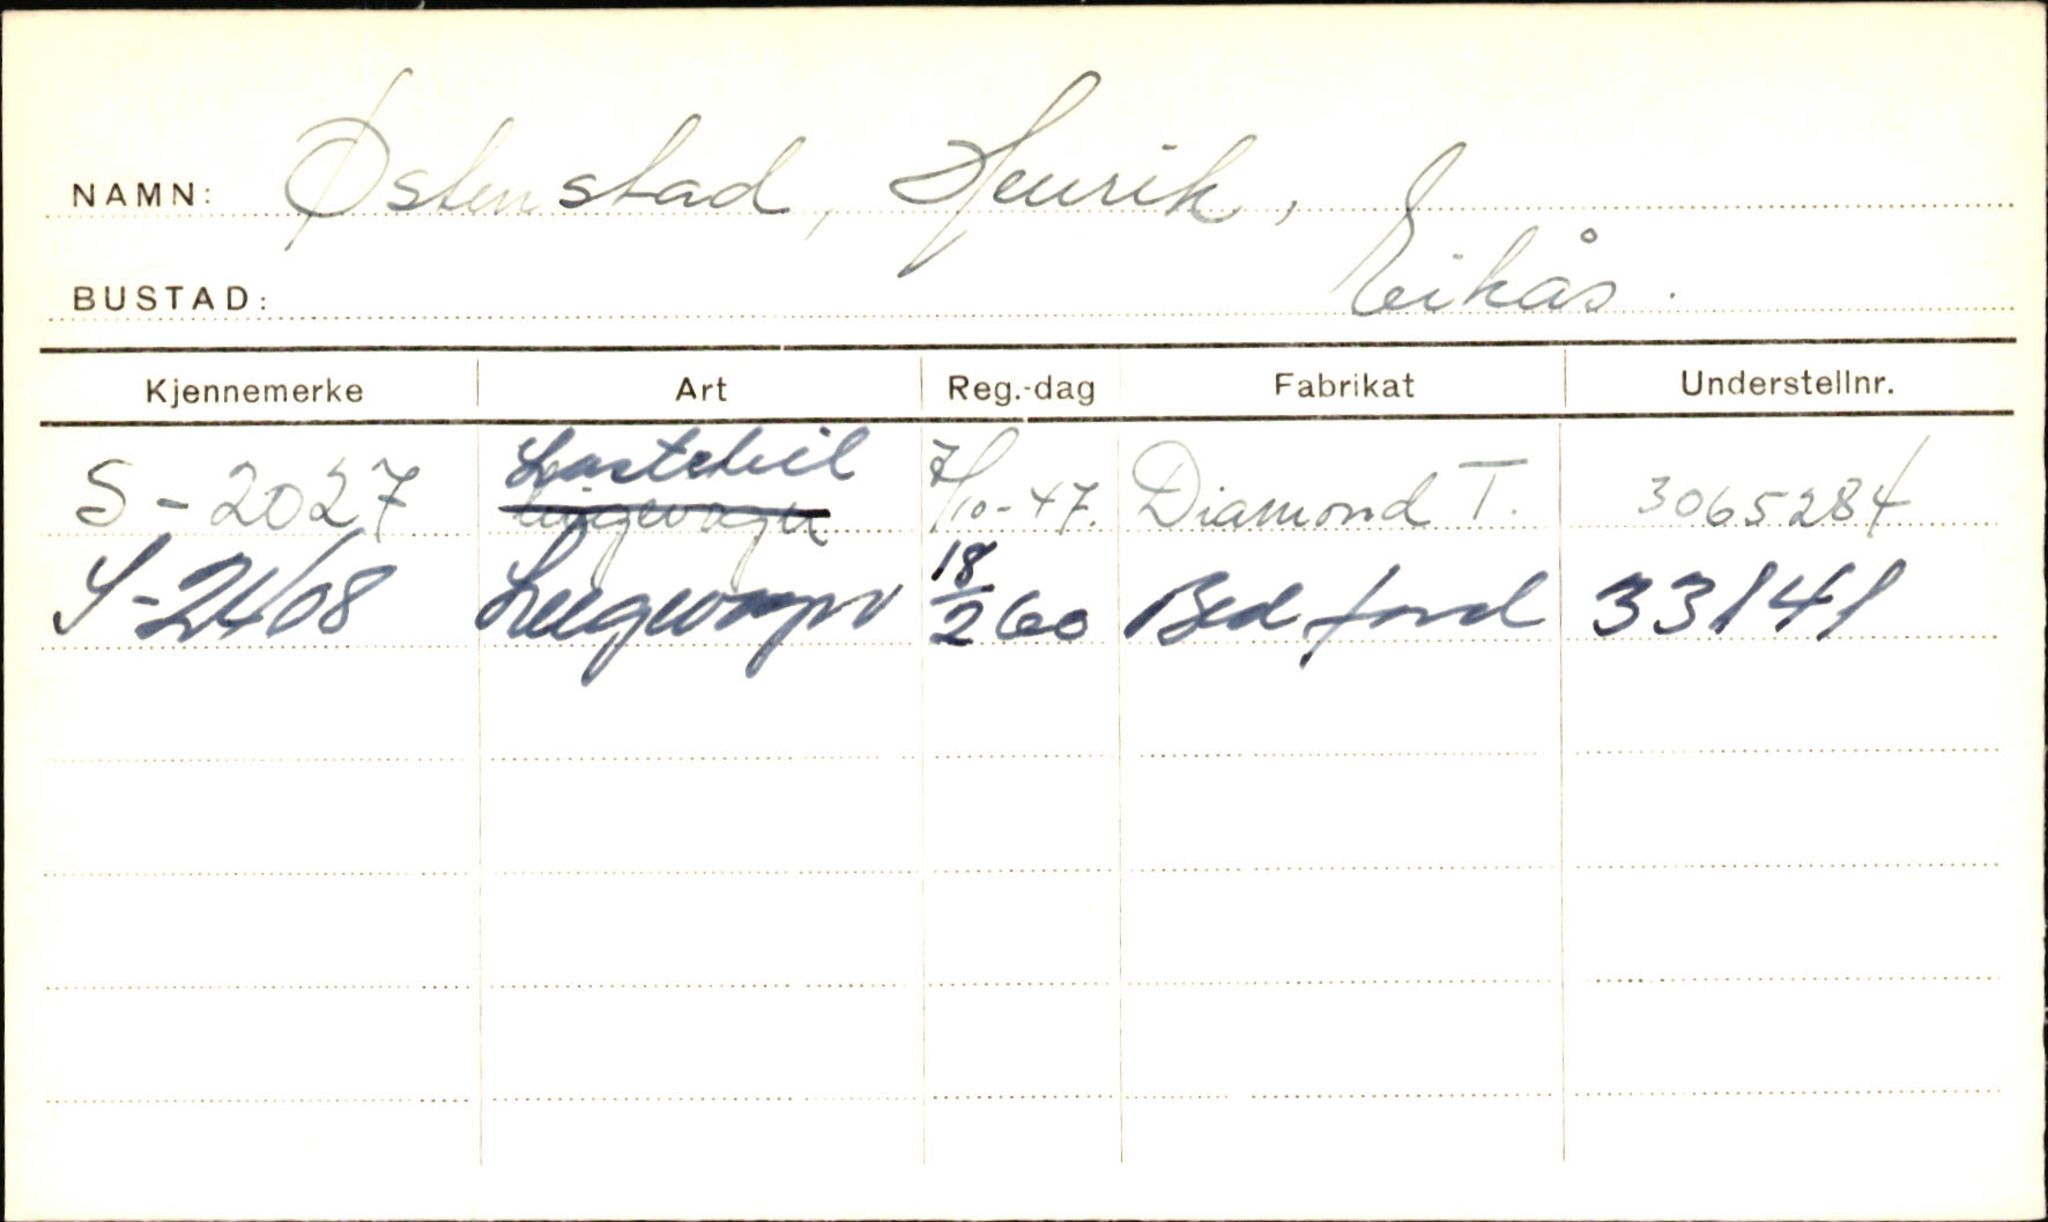 NAMN: Østenstad, Henrik,
BUSTAD: Eikås.
Kjennemerke Art Reg.-dag Fabrikat Understellnr.
Lastebil
S-2027 Leigevogn 7/10-47. Diamond T. 3065284
S-2408 Leigevogn 18/2 60 Bedford 33141